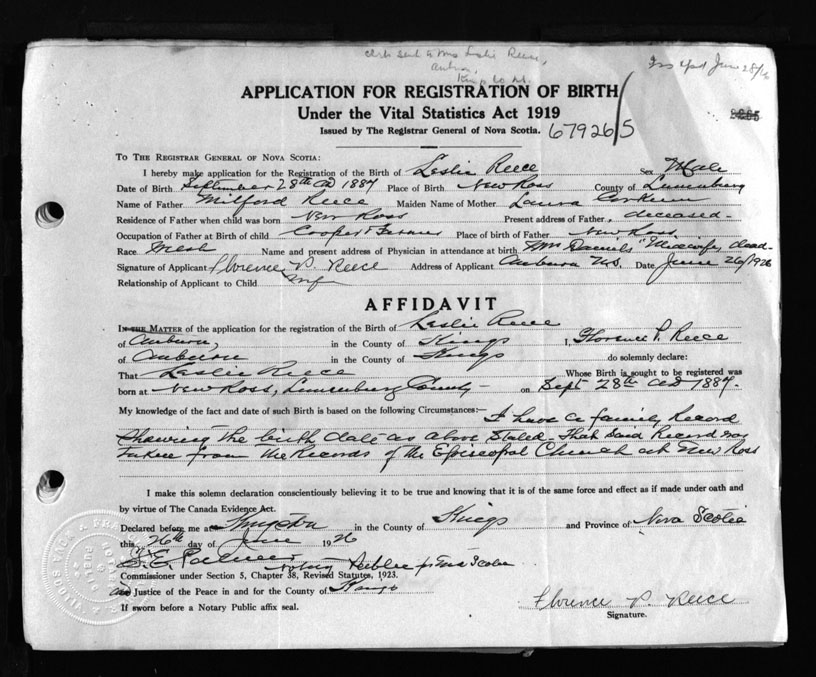 Mrs Leslie Reece,
June 28/26
APPLICATION FOR REGISTRATION OF BIRTH
Under the Vital Statistics Act 1919
Issued by The Registrar General of Nova Scotia. 67926/5
TO THE REGISTRAR GENERAL OF NOVA SCOTIA:
I hereby make application for the Registration of the Birth of Leslie Reece Sex Male
Date of Birth September 28th AD 1887 Place of Birth New Ross County of Lunenburg
Name of Father Milford Reece Maiden Name of Mother Laura Corkum
Residence of Father when child was born New Ross Present address of Father, deceased-
Occupation of Father at Birth of child Cooper & Farmer Place of birth of Father New Ross
Race Name and present address of Physician in attendance at birth Mrs Daniels "Midwife, dead-
Signature of Applicant Florence P. Reece Address of Applicant Auburn N.S. Date June 26/1926
Relationship of Applicant to Child Wife
AFFIDAVIT
IN THE MATTER of the application for the registration of the Birth of Leslie Reece
of Auburn, in the County of Kings I, Florence P. Reece
of Auburn in the County of Kings do solemnly declare:
That Leslie Reece Whose Birth is sought to be registered was
born at New Ross, Lunenburg County- on Sept 28th AD 1887.
My knowledge of the fact and date of such Birth is based on the following Circumstances:— I have a family Record
Showing the birth date as above Stated- That Said Record was
taken from the Records of the Episcopal Church at New Ross
I make this solemn declaration conscientiously believing it to be true and knowing that it is of the same force and effect as if made under oath and
by virtue of The Canada Evidence Act.
Declared before me at Kingston in the County of Kings and Province of Nova Scotia
this 26th day of June 1926
S. E. Palmer Notary Public for Nova Scotia
Commissioner under Section 5, Chapter 38, Revised Statutes, 1923.
Justice of the Peace in and for the County of Kings
If sworn before a Notary Public affix seal.
Florence P. Reece
Signature.